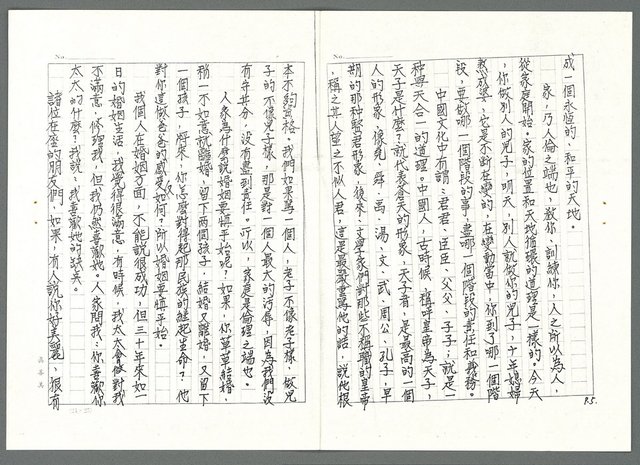 No.
P.5
成一個永恆的、和平的天地。
家，乃人倫之端也，教你、訓練你，人之所以為人，
從家庭開始。家的位置和天地循環的道理是一樣的。今天
，你做別人的兒子，明天，別人就做你的兒子，十年媳婦
熬成婆，它是不斷在變的，在變動當中，你到了哪一個階
段，要做哪一個階段的事，盡哪一個階段的責任和義務。
中國文化中有謂：君君、臣臣、父父、子子；就是一
種與天合一的道理。中國人，古時候，稱呼皇帝為天子，
天子是什麼？就代表蒼天的形象。天子者，是最高的一個
人的形象，像堯、舜、禹、湯、文、武、周公、孔子，早
期的那種賢君形象，後來，文學家們對那些不稱職的皇帝
，稱之其人望之不似人君，這是最嚴重罵他的話，說他根
No.
本不夠資格。我們如果為一個人，老子不像老子樣，做兒
子的不像兒子樣，那是對一個人最大的污辱，因為我們沒
有守其分，沒有盡到責任。所以，家庭是倫理之端也。
人家為什麼說婚姻要慎平始呢？如果，你草草結婚
，稍一不如意就離婚，留下兩個孩子，結婚又離婚，又留下
一個孩子，將來，你怎麼對得起那民族的繼起生命？他
對你這做爸爸的感受如何？所以婚姻要慎平始。
我個人在婚姻方面，不能說很成功，但三十年來如一
日的婚姻生活，我覺得很滿意，有時候，我太太會做對我
不滿意，修理我，但我仍然喜歡她。人家問我：你喜歡你
太太的什麼？我說：我喜歡她的缺失。
諸位在座的朋友們，如果，有人說你好美麗，很有